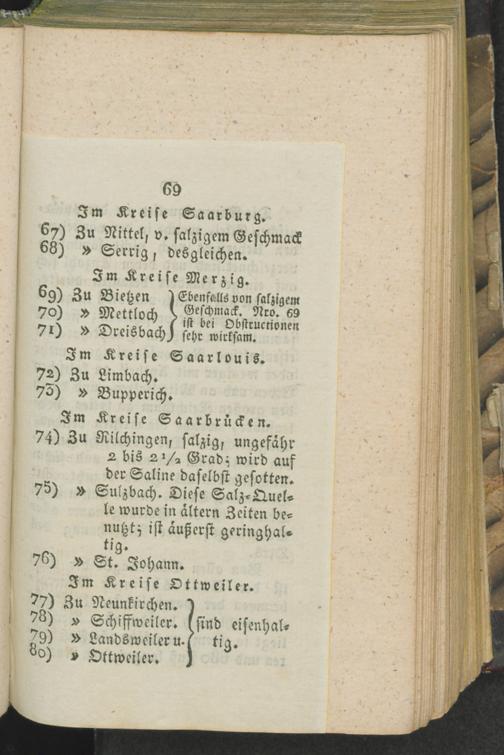 69
Im Kreise Saarburg.
67) Zu Nittel, v. salzigem Geschmack
68) » Serrig, desgleichen.
Im Kreise Merzig.
69) Zu Bietzen
70) » Mettloch
71) » Dreisbach
Ebenfalls von salzigem
Geschmack. Nro. 69
ist bei Obstructionen
sehr wirksam.
Im Kreise Saarlouis.
72) Zu Limbach.
73) » Bupperich.
Im Kreise Saarbrücken.
74) Zu Rilchingen, salzig, ungefähr
2 bis 2 1/2 Grad; wird auf
der Saline daselbst gesotten.
75) » Sulzbach. Diese Salz=Quel=
le wurde in ältern Zeiten be=
nutzt; ist äußerst geringhal=
tig.
76) » St. Johann.
Im Kreise Ottweiler.
77) Zu Neunkirchen.
78) » Schiffweiler.
79) » Landsweiler u.
80) » Ottweiler.
sind eisenhal=
tig.